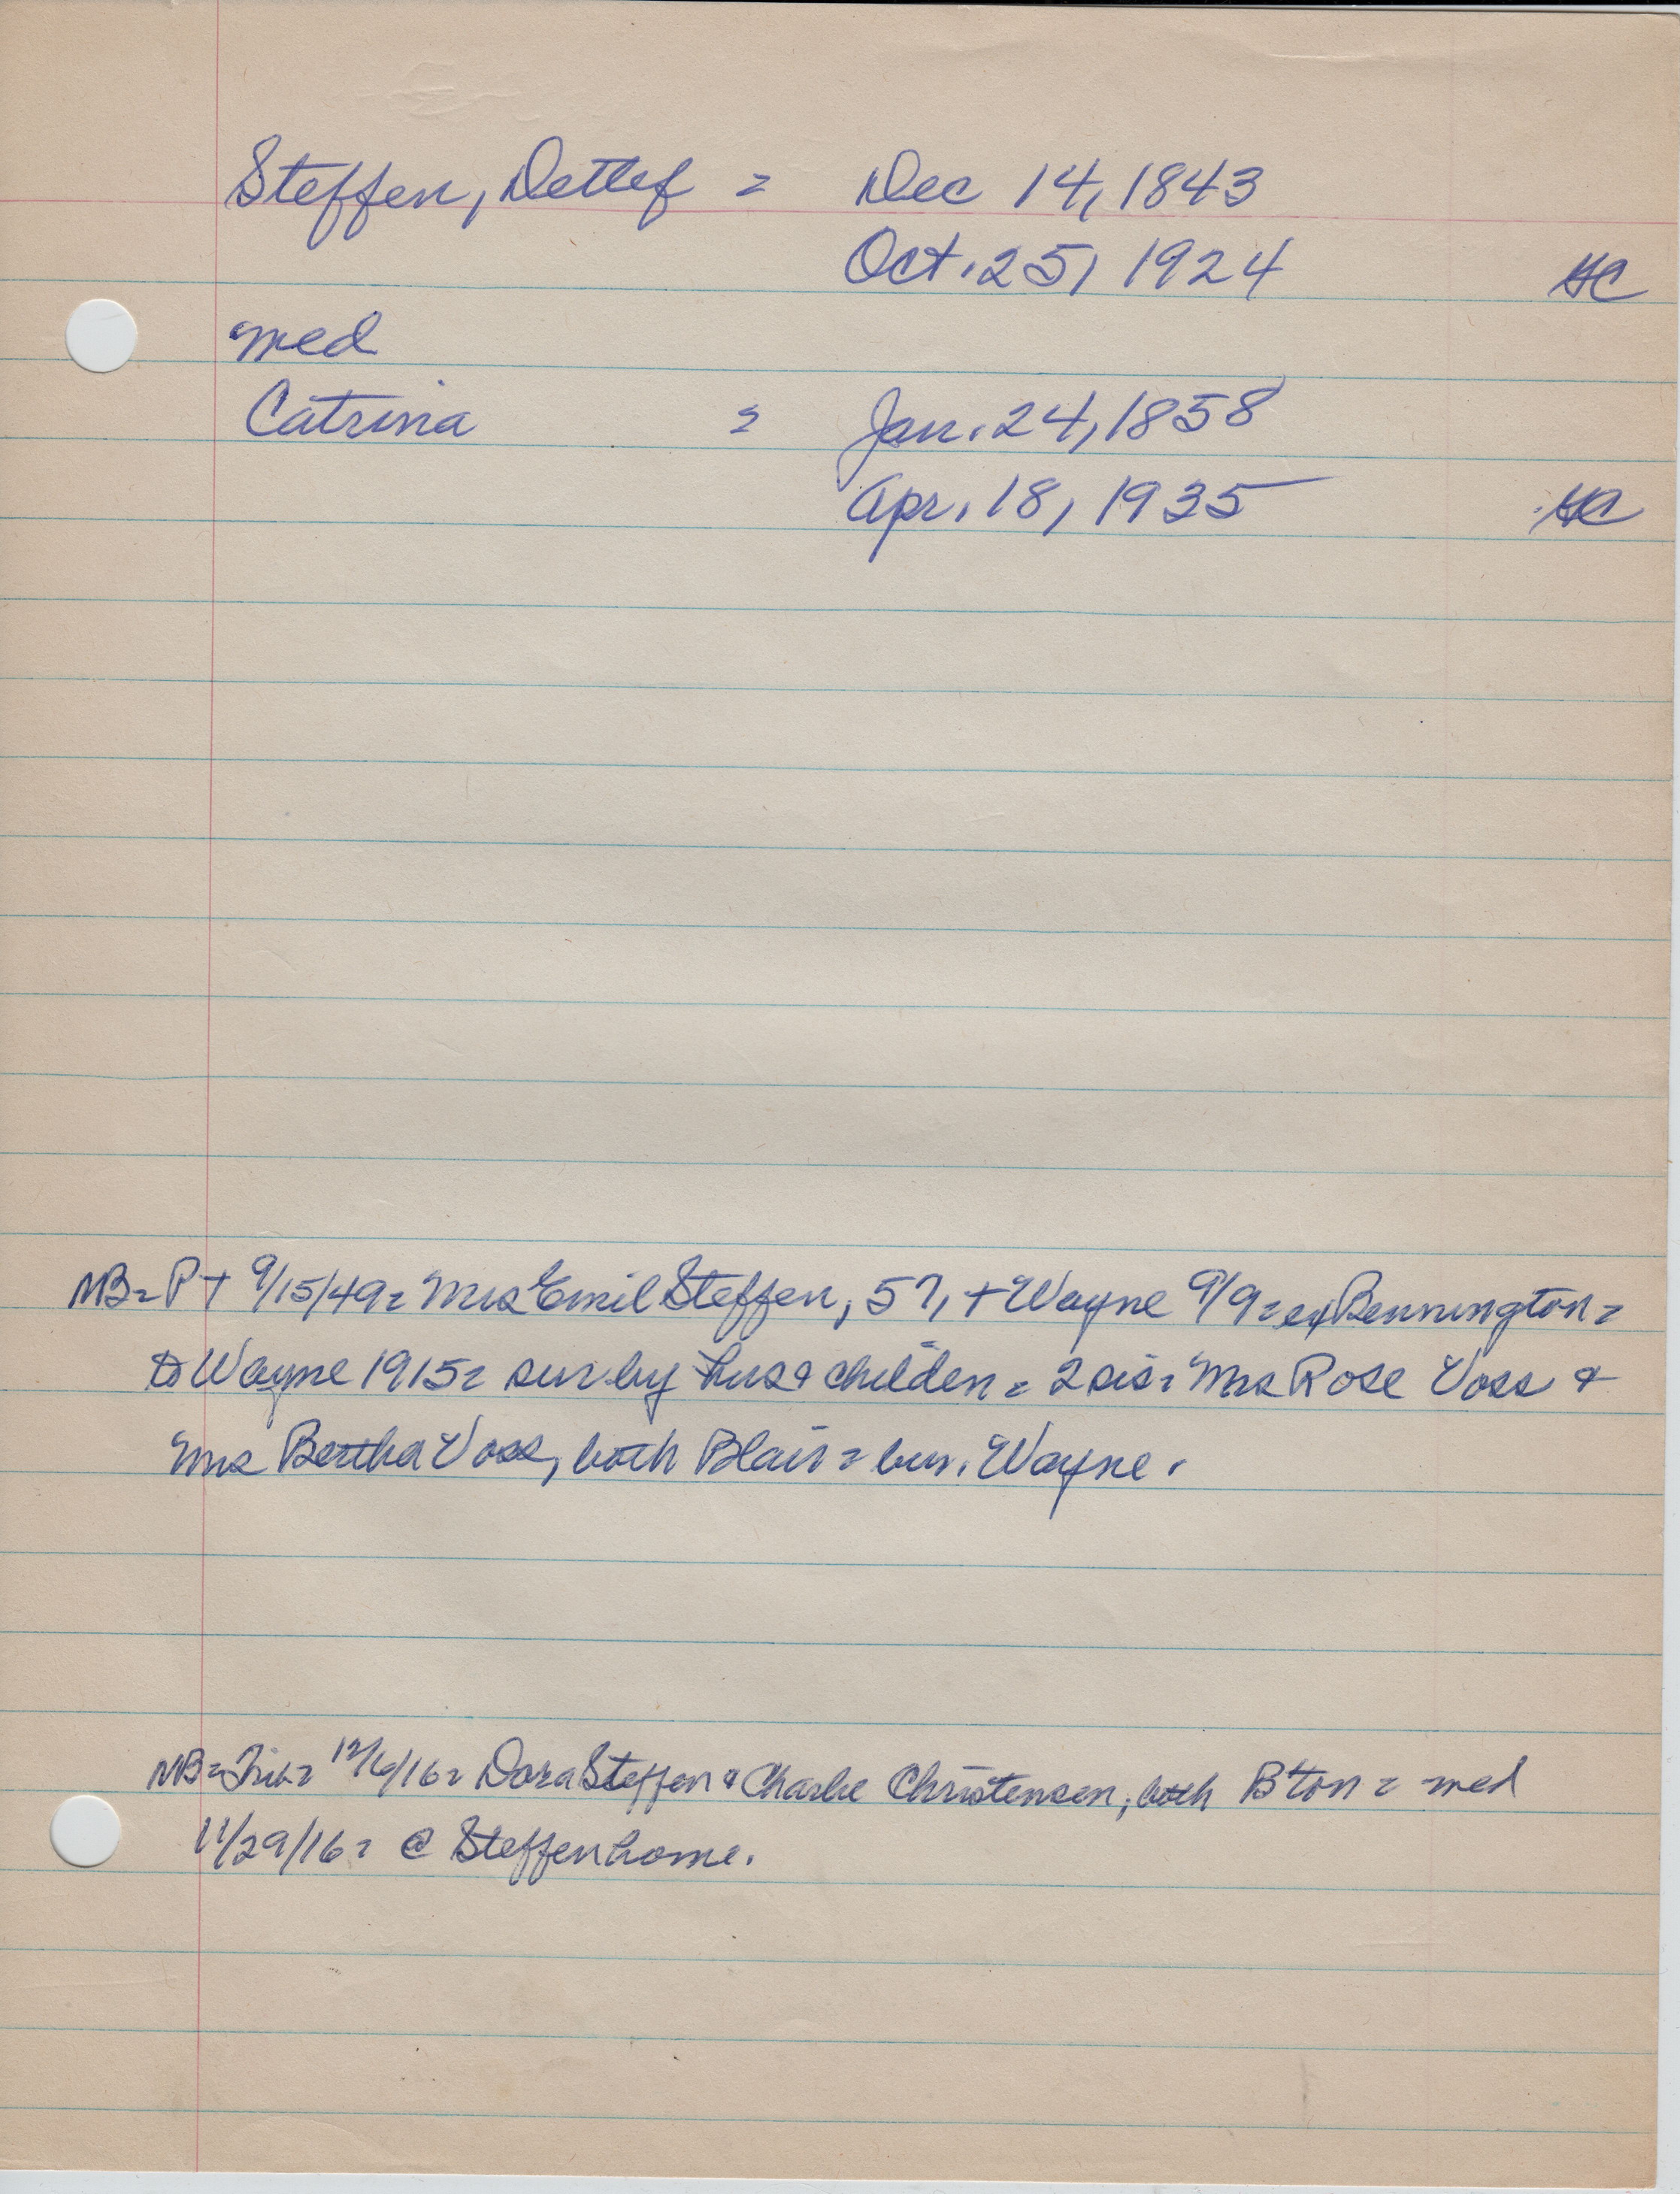 Steffen, Detlef = Dec 14, 1843
Oct. 25, 1924 HC
med
Catrina = Jan. 24, 1858
Apr. 18, 1935 HC
NB = P+ 9/15/49 = Mrs Emil Steffen, 57, + Wayne 9/9 = ex Bennington =
to Wayne 1915 = sur by hus & childen = 2 sis = Mrs Rose Voss &
Mrs Bertha Voss, both Blair = bur. Wayne.
NB = Trib = 12/6/16 = Dora Steffen & Charlie Christensen, both B'ton = med
11/29/16 = @ Steffen home.